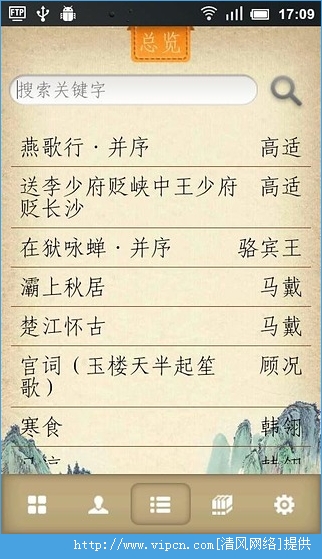 FTP
17:09
总览
搜索关键字
燕歌行·并序 高适
送李少府贬峡中王少府 高适
贬长沙
在狱咏蝉·并序 骆宾王
灞上秋居 马戴
楚江怀古 马戴
宫词（玉楼天半起笙 顾况
歌）
寒食 韩翎
http://www.vipcn.com[清风网络]提供